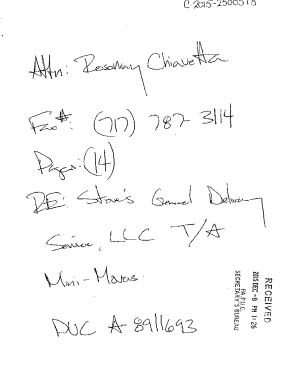 C-2015-2500518
Attn: Rosemary Chiavetta
Fax#: (717) 787-3114
Pages: (14)
RE: Steve's General Delivery
Service, LLC T/A
Mini-Moves
PUC A-8911693
RECEIVED
2015 DEC -8 PM 11:26
PA P.U.C.
SECRETARY'S BUREAU